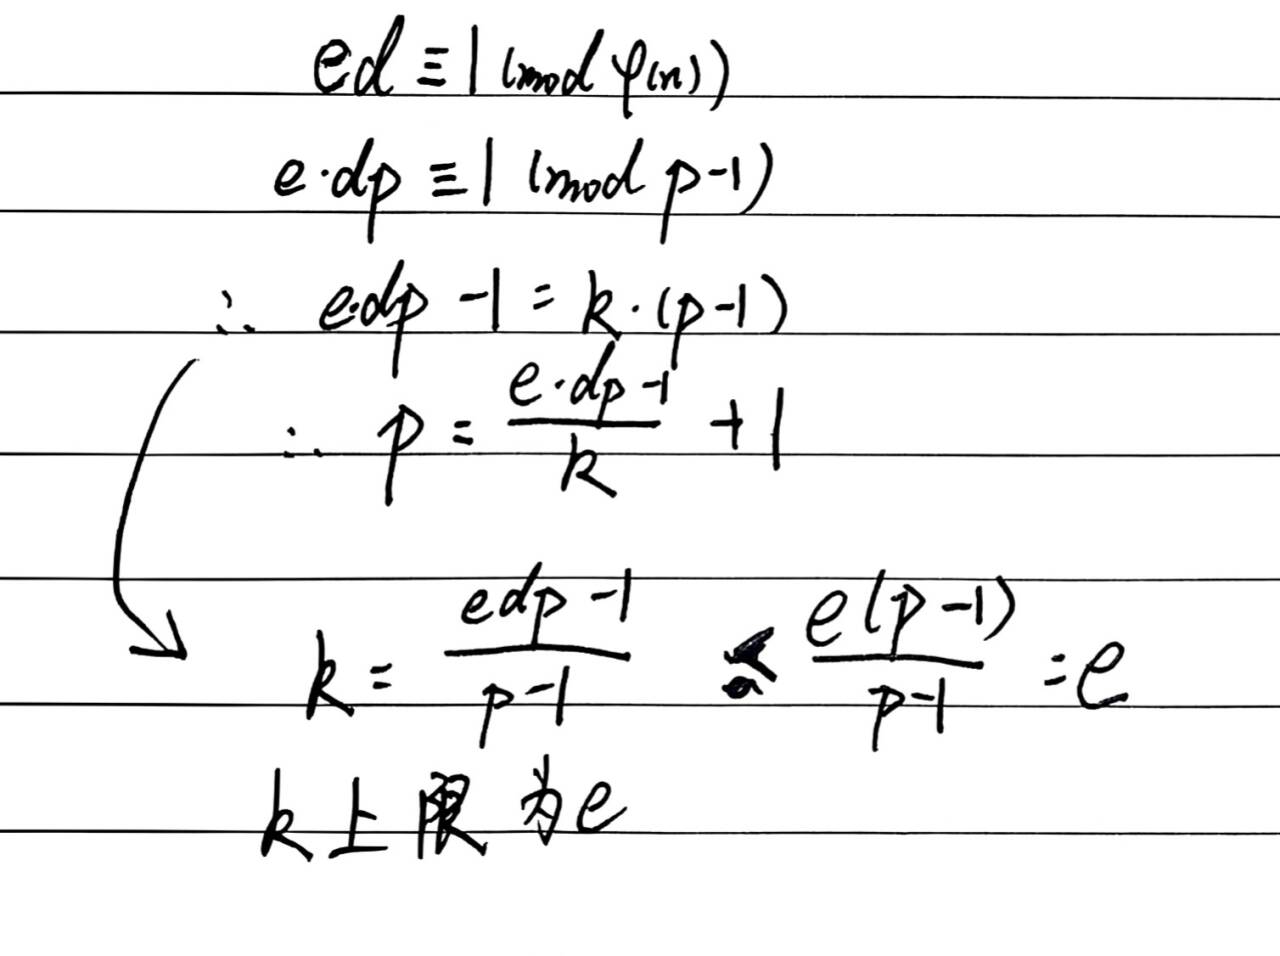 ed ≡ 1 (mod φ(n))
e·dp ≡ 1 (mod p-1)
∴ e·dp - 1 = k·(p-1)
∴ p = (e·dp-1)/k + 1
k = (edp-1)/(p-1) < (e(p-1))/(p-1) = e
k上限为e